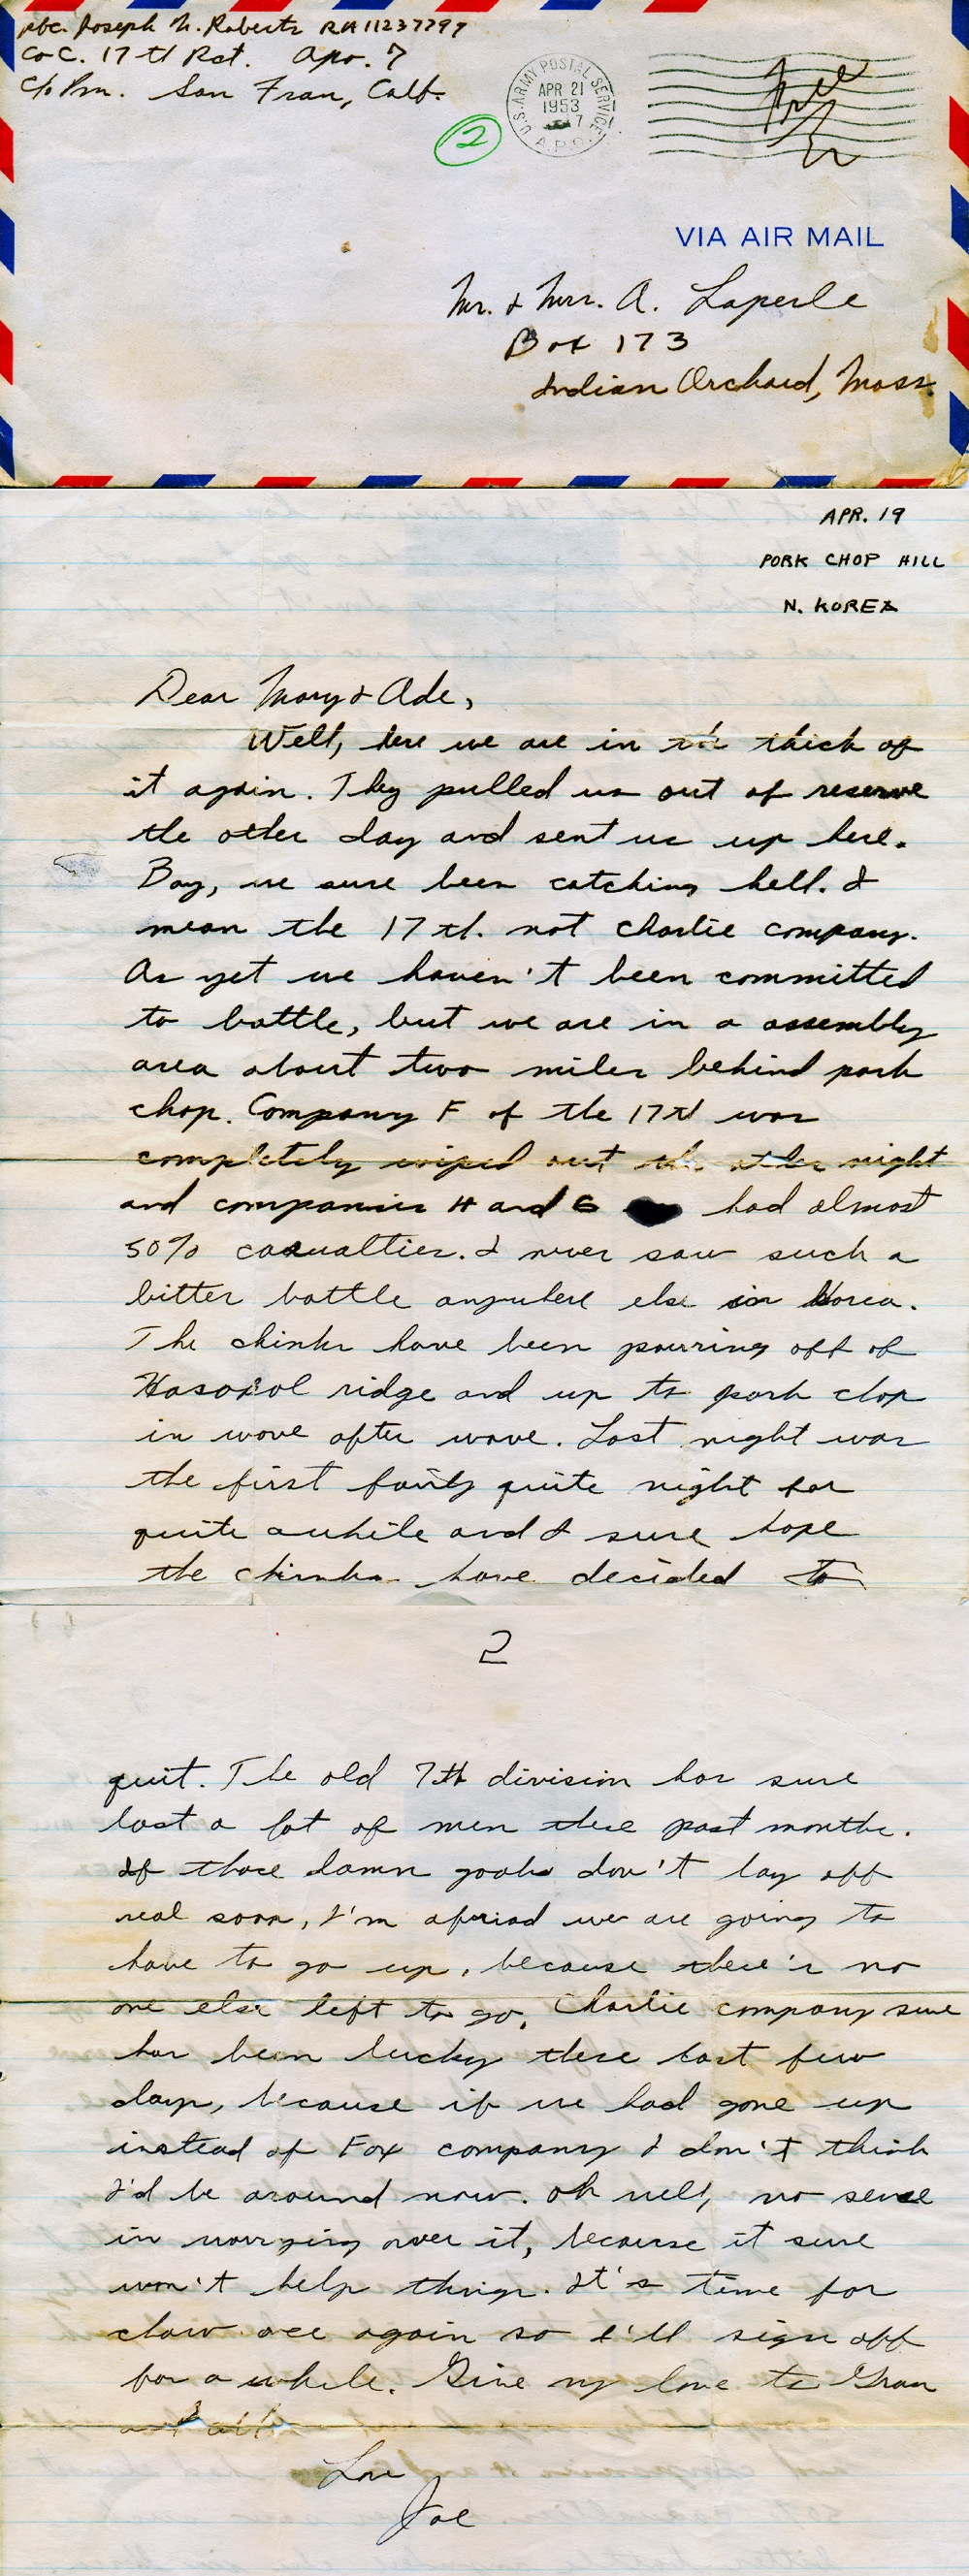 Pvc. Joseph N. Roberts RA 11237797
Co C. 17 th Rct. Apo. 7
c/o Pm. San Fran, Calf.
U.S. ARMY POSTAL SERVICE
APR 21
1953
7
A.P.O.
Free
2
VIA AIR MAIL
Mr. & Mrs. A. Laperle
Box 173
Indian Orchard, Mass.
APR. 19
PORK CHOP HILL
N. KOREA
Dear Mary & Ade,
Well, here we are in the thick of
it again. They pulled us out of reserve
the other day and sent us up here.
Boy, we sure been catching hell. I
mean the 17 th. not Charlie company.
As yet we haven't been committed
to battle, but we are in a assembly
area about two miles behind pork
chop. Company F of the 17th was
completely wiped out the other night
and companies H and G had almost
50% casualties. I never saw such a
bitter battle anywhere else in Korea.
The chinks have been pouring off of
Hasakol ridge and up to pork chop
in wave after wave. Last night was
the first fairly quite night for
quite awhile and I sure hope
the chinks have decided to
2
quit. The old 7th division has sure
lost a lot of men these past months.
If those damn gooks don't lay off
real soon, I'm afariad we are going to
have to go up, because there's no
one else left to go. Charlie company sure
has been lucky these last few
days, because if we had gone up
instead of Fox company I don't think
I'd be around now. Oh well, no sense
in worrying over it, because it sure
won't help things. It's time for
chow once again so I'll sign off
for a while. Give my love to Gran
and all.
Love
Joe